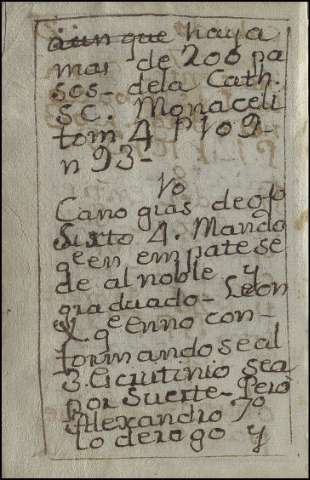 aunque haya
mas de 200 pa
sos - dela Cath.
SC. Monaceli
tom 4 P 109 -
n 93 -
Yo
Canogias de ofo
Sixto 4. Mando
qe en empate se
de al noble y
graduado - Leon
X. qe Enno con -
formandose al
3. Escrutinio sea
por Suerte - Pero
Alexandro 7o
lo derogo y